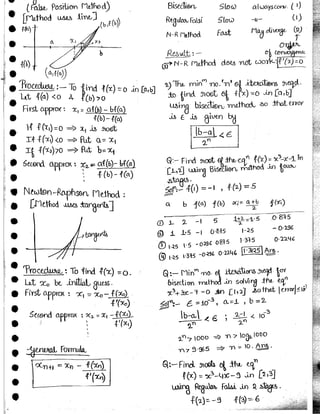 (False Position Method)
[Method uses line.]
f(x)
(b, f(b))
a
x₁
x₂
b
f(a)
(a, f(a))
Procedure:- To find f(x) = 0 in [a, b]
Let f(a) < 0 & f(b) > 0
First approx: x₁ = af(b) - bf(a) / f(b) - f(a)
If f(x₁) = 0 => x₁ is root
If f(x₁) < 0 => Put a = x₁
If f(x₁) > 0 => Put b = x₁
Second approx: x₂ = af(b) - bf(a) / f(b) - f(a)
Newton-Raphson Method:
[Method uses tangents]
tangents
Procedure:- To find f(x) = 0.
Let x₀ be initial guess.
First approx: x₁ = x₀ - f(x₀) / f'(x₀)
Second approx: x₂ = x₁ - f(x₁) / f'(x₁)
General Formula,
xₙ₊₁ = xₙ - f(xₙ) / f'(xₙ)
Bisection Slow always conv. (1)
Regular Falsi Slow (1)
N-R Method Fast May diverge (2)
↑
Order of convergence
Result:-
N-R Method does not work f'(x) = 0
2) The minm no. "n" of iterations reqd.
to find root of f(x) = 0 in [a, b]
using bisection method, so that error
is ε is given by
|b-a| / 2ⁿ < ε
Q:- Find root of the eqn f(x) = x³-x-1 in
[1,2] using Bisection method in four
stages.
Soln f(1) = -1, f(2) = 5
a b f(a) f(b) x₁ = a+b / 2 f(x₁)
① 1 2 -1 5 1+2 / 2 = 1.5 0.875
② 1 1.5 -1 0.875 1.25 -0.296
③ 1.25 1.5 -0.296 0.875 1.375 0.2246
④ 1.25 1.375 -0.296 0.2246 1.3125 Ans.
Q:- Minm no. of iterations reqd for
bisection method in solving the eqn
x³+3x-7=0 in [1,2] so that |error| ≤ 10⁻³
Soln:- ε = 10⁻³, a = 1, b = 2
|b-a| / 2ⁿ < ε ; 2-1 / 2ⁿ < 10⁻³
2ⁿ > 1000 => n > log₂ 1000
n > 9.965 => n = 10. Ans.
Q:- Find roots of the eqn
f(x) = x³-4x-9 in [2,3]
using Regular Falsi in 2 stages.
f(2) = -9 f(3) = 6